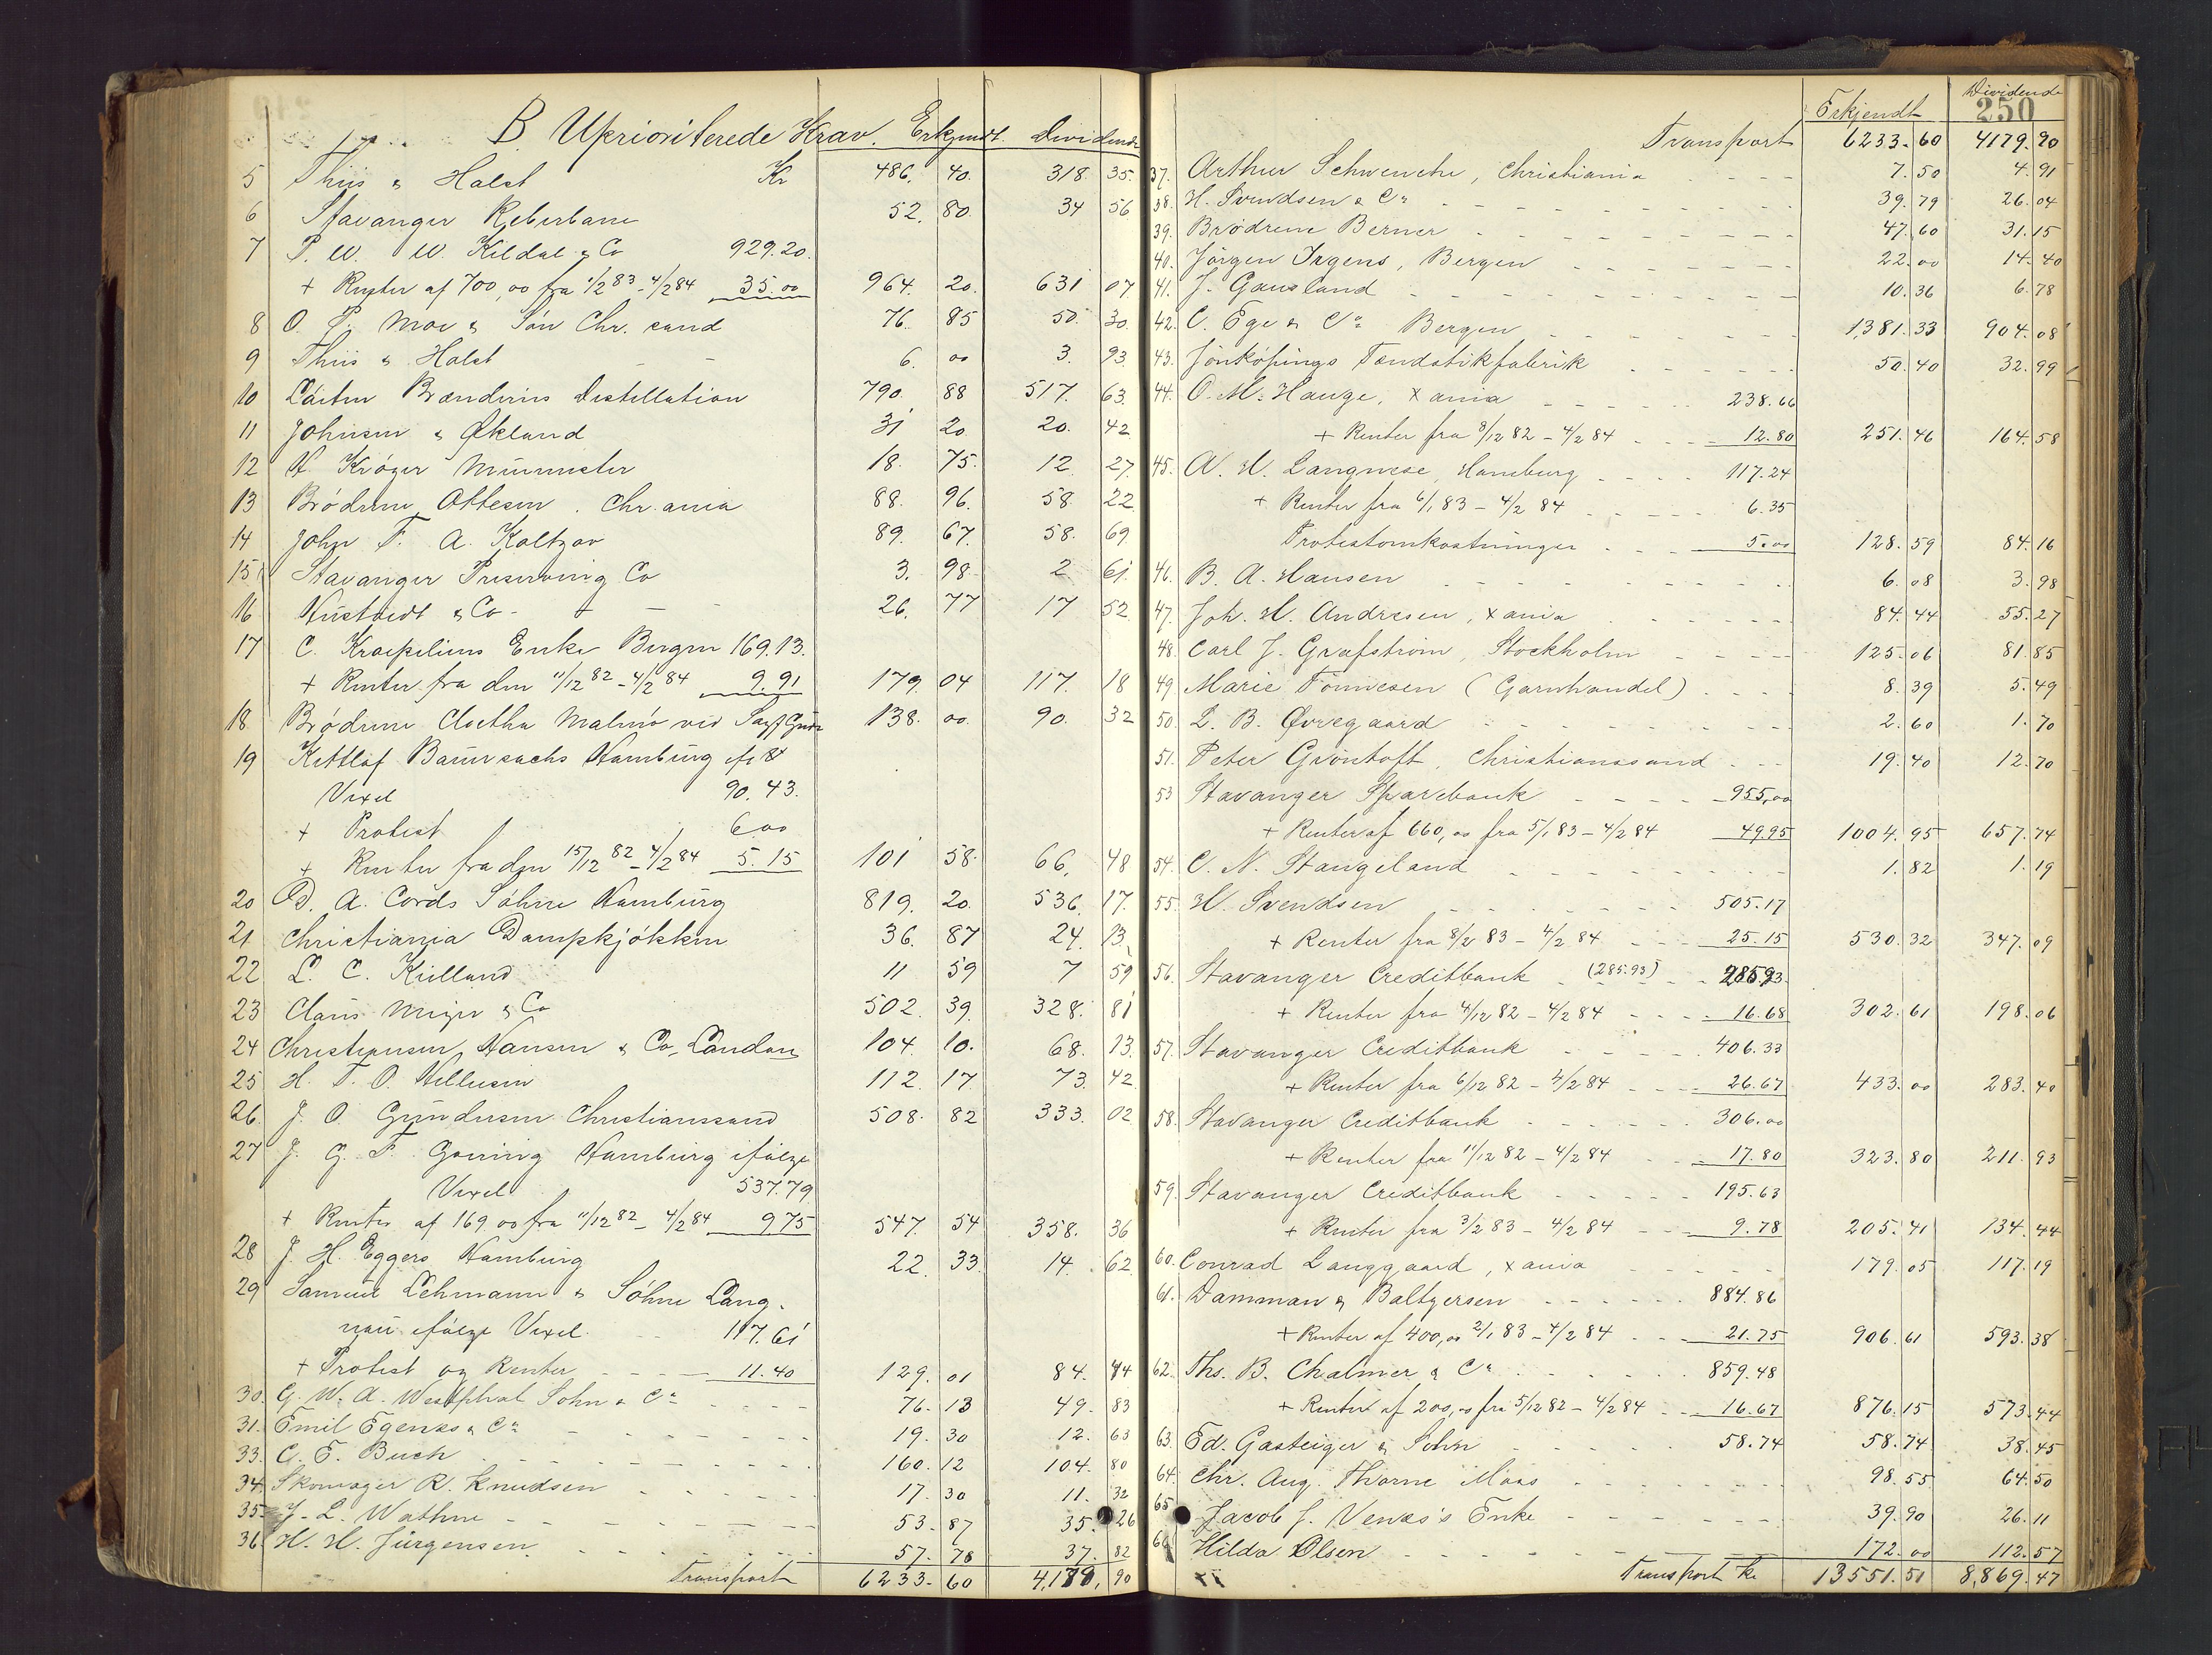 B. Uprioriterede Krav. Erkjendt. Dividende
5 Thiis & Halst Kr 486. 40. 318. 35.
6 Stavanger Reberbane 52. 80. 34 56
7 P. W. W. Kildal & Co 929.20.
+ Renter af 700,00 fra 1/2 83 - 4/2 84 35.00 964. 20. 631 07
8 O. P. Moe & Sön Chr. sand 76. 85 50. 30.
9 Thiis & Halst 6. 00 3. 93
10 Löiten Brænderies Destillation 790. 88 517. 63.
11 Johnsen & Økland 31 20. 20. 42
12 H. Kröger Münnister 18. 75. 12 27.
13 Brödrene Ottesen. Chr.ania 88. 96. 58. 22
14 John F. A. Koltzov 89. 67. 58. 69
15 Stavanger Preserving Co 3. 98. 2 61.
16 Hustvedt & Co 26. 77 17 52
17 C. Kraepeliens Enke Bergen 169.13.
+ Renter fra den 11/12 82 - 4/2 84 9.91 179. 04 117. 18
18 Brödrene Cloetta Malmö ved Sagf. 138. 00. 90. 32
19 Kettlaf Baursachs Hamburg
Vexel 90. 43.
+ Protest 6.00
+ Renter fra den 15/12 82 - 4/2 84 5.15 101 58. 66. 48
20 D. A. Cords Söhne Hamburg 819. 20. 536. 17.
21 Christiania Dampkjökken 36. 87 24. 13.
22 L. C. Kielland 11 59 7 59
23 Claus Meyer & Co 502. 39. 328. 81
24 Christensen, Hansen & Co, London 104. 10. 68. 13.
25 H. T. O. Hellesen 112. 17 73. 42
26 J. O. Gundersen Christianssand 508. 82 333. 02
27 J. G. F. Goering Hamburg ifølge
Vexel 537.79
+ Renter af 169.00 fra 11/12 82 - 4/2 84 9.75 547. 54 358. 36
28 J. H. Eggers Hamburg 22. 33. 14. 62
29 Samuel Lehmann & Söhne Lang-
nau ifölge Vexel 117.61
+ Protest og Renter 11.40 129. 01 84. 44
30. G. W. A. Westphal Sohn & Co 76. 13 49. 83
31. Emil Egenæs & Co 19. 30 12. 63
33. C. E. Buch 160. 12 104. 80
34. Skomager R. Knudsen 17. 30 11. 32
35. J. L. Wathne 53. 87 35. 26
36. H. H. Jürgensen 57. 78 37. 82
Transport 6233. 60 4,179. 90
Erkjendt Dividende
250
Transport 6233. 60 4179. 90
37. Arthur Schwenche, Christiania 7. 50 4. 91
38. H. Svendsen & Co 39. 79 26. 04
39. Brødrene Berner 47. 60 31. 15
40. Jörgen Irgens, Bergen 22. 00 14. 40
41. J. Gausland 10. 36 6. 78
42. C. Ege & Co Bergen 1,381. 33 904. 08
43. Jönköpings Tændstikfabrik 50. 40 32. 99
44. O. M. Hauge, Xania 238.66
+ Renter fra 8/12 82 - 4/2 84 12.80 251. 46 164. 58
45. A. H. Langnese, Hamburg 117.24
+ Renter fra 6/1 83 - 4/2 84 6.35
Protestomkostninger 5.00 128. 59 84. 16
46. B. A. Hansen 6. 08 3. 98
47. Joh. H. Andresen, Xania 84. 44 55. 27
48. Carl J. Grafström, Stockholm 125. 06 81. 85
49. Marie Tönnesen (Garnhandel) 8. 39 5. 49
50. L. B. Øvregaard 2. 60 1. 70
51. Peter Gröntoft, Christianssand 19. 40 12. 70
53 Stavanger Sparebank 955,00
+ Renter af 660,00 fra 5/1 83 - 4/2 84 49.95 1004. 95 657. 74
54. C. N. Stangeland 1. 82 1. 19
55. H. Svendsen 505.17
+ Renter fra 8/2 83 - 4/2 84 25.15 530. 32 347. 09
56. Stavanger Creditbank (285.93) 285.93
+ Renter fra 4/12 82 - 4/2 84 16.68 302. 61 198. 06
57. Stavanger Creditbank 406.33
+ Renter fra 6/12 82 - 4/2 84 26.67 433. 00 283. 40
58. Stavanger Creditbank 306.00
+ Renter fra 11/12 82 - 4/2 84 17.80 323. 80 211. 93
59. Stavanger Creditbank 195.63
+ Renter fra 3/2 83 - 4/2 84 9.78 205. 41 134. 44
60. Conrad Langgaard, Xania 179. 05 117. 19
61. Damman & Baltzersen 884.86
+ Renter af 400,00 2/1 83 - 4/2 84 21.75 906. 61 593. 38
62. Ths. B. Chalmer & Co 859.48
+ Renter af 200,00 fra 5/12 82 - 4/2 84 16.67 876. 15 573. 44
63. Ed. Gasteiger & Sohn 58.74 58. 74 38. 45
64. Chr. Aug. Thorne Moss 98. 55 64. 50
65 Jacob J. Venæs's Enke 39. 90 26. 11
66 Hilda Olsen 172. 00 112. 57
Transport Kr 13551. 51 8,869. 47